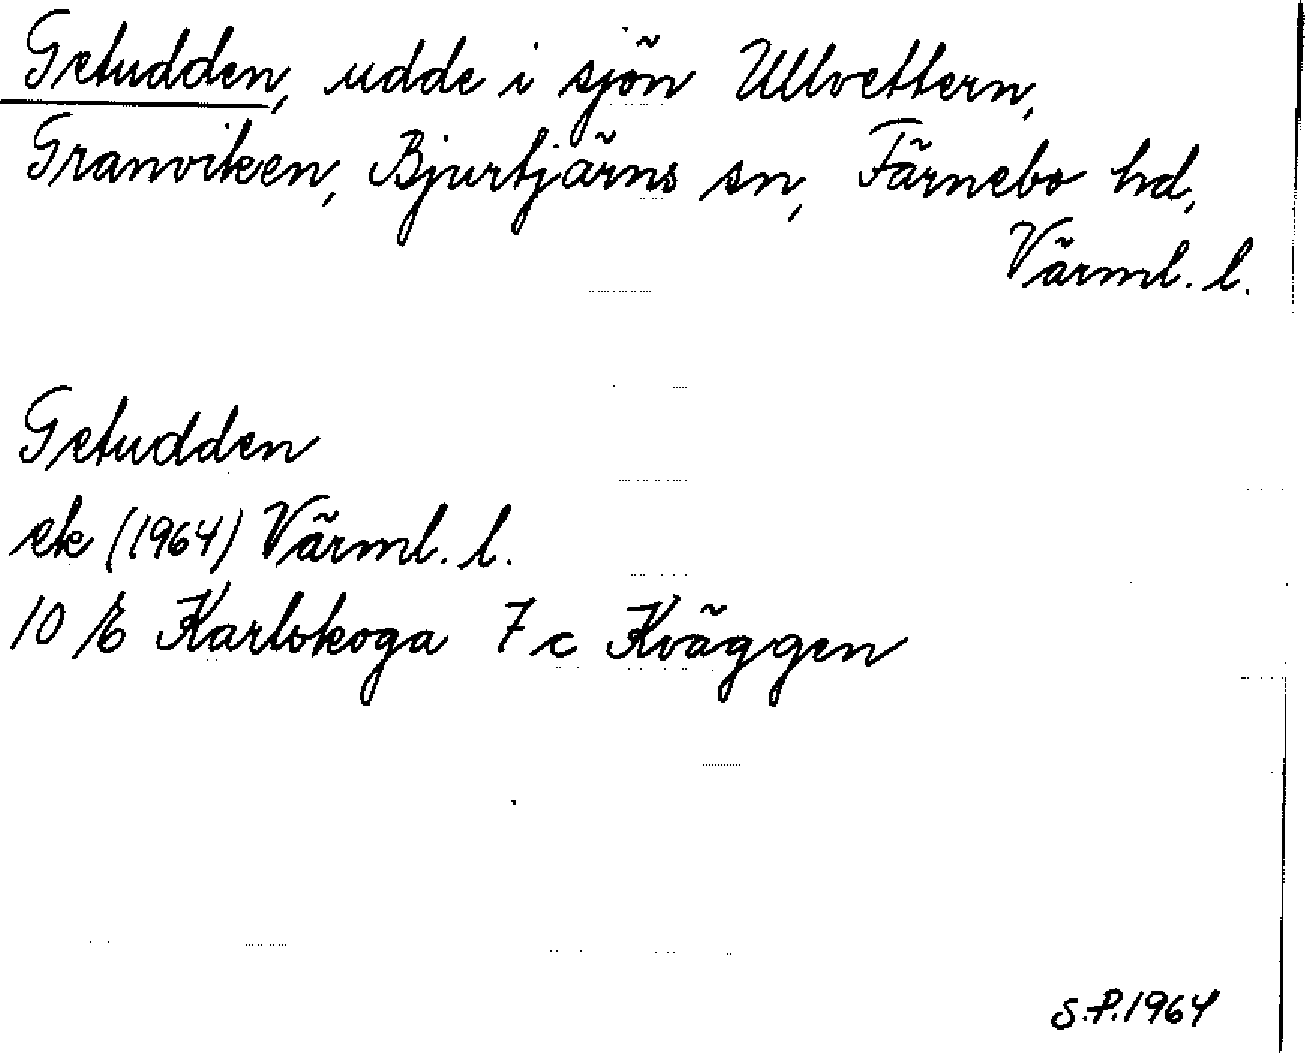 Getudden, udde i sjön Ullvettern,
Granviken, Bjurtjärns sn, Färnebo hd,
Värml. l.
Getudden
ek (1964) Värml. l.
10 E Karlskoga 7 c Kväggen
S.P. 1964